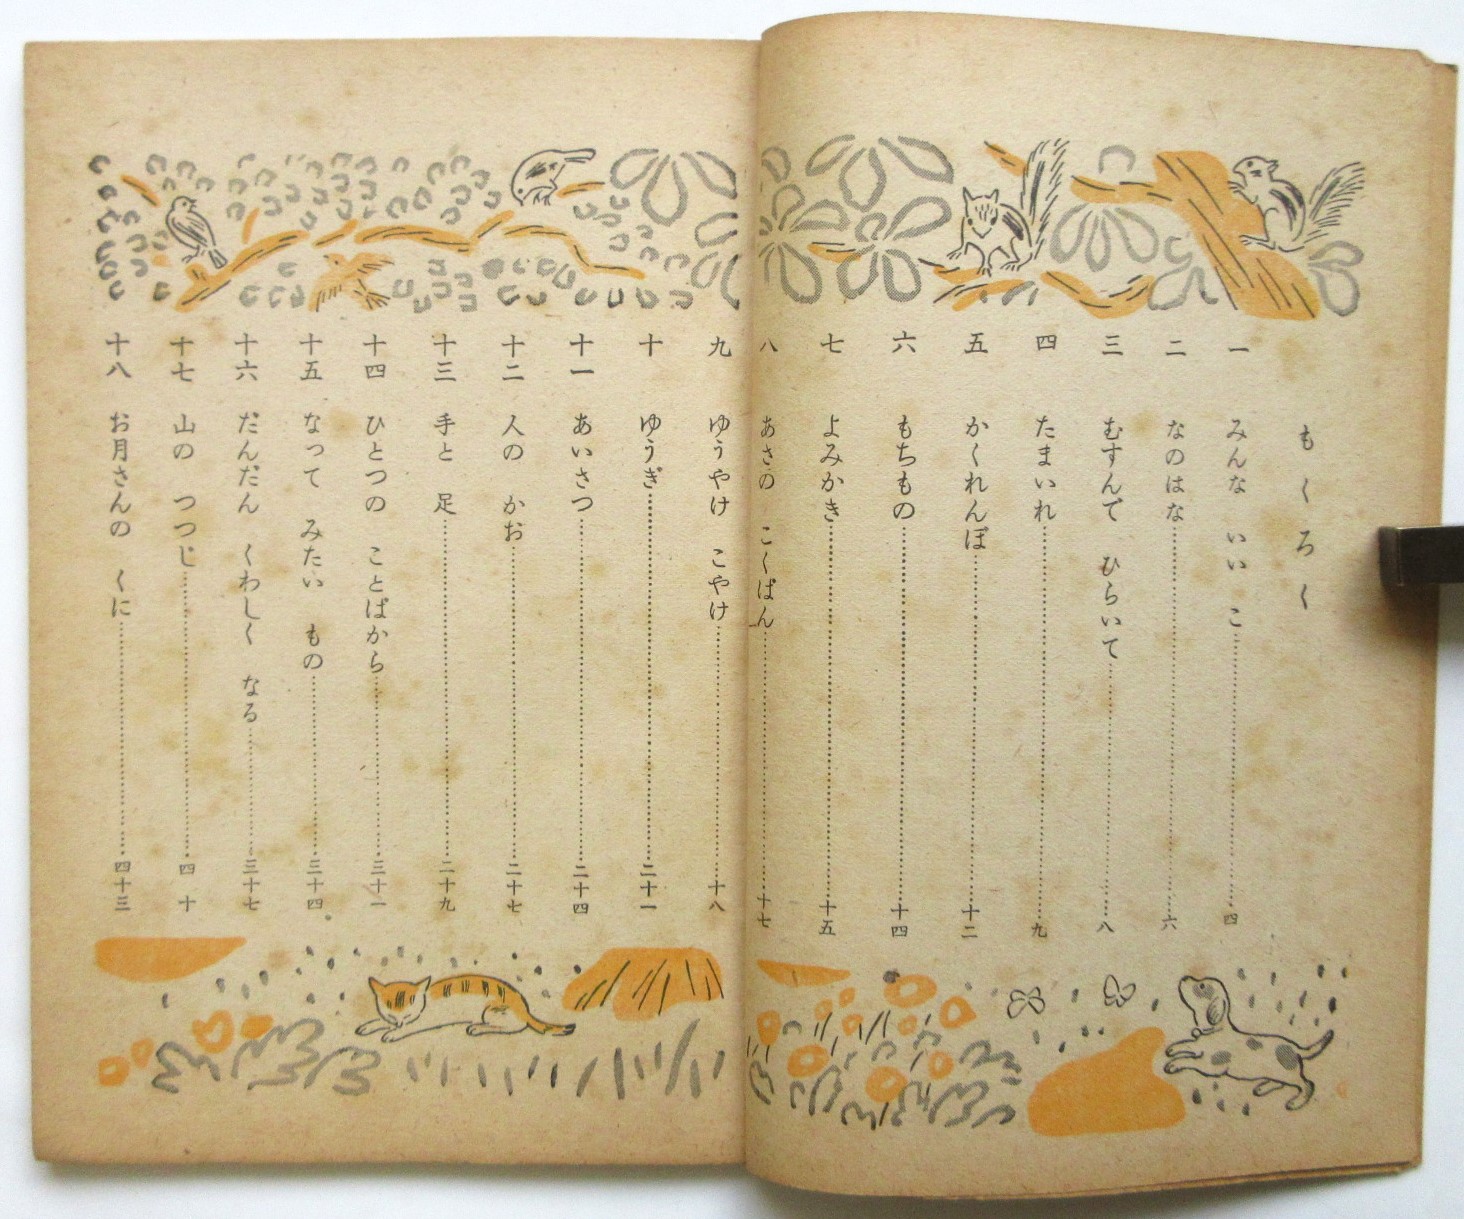 もくろく
一 みんな いい こ……四
二 なのはな……六
三 むすんで ひらいて……八
四 たまいれ……九
五 かくれんぼ……十二
六 もちもの……十四
七 よみかき……十五
八 あさの こくばん……十七
九 ゆうやけ こやけ……十八
十 ゆうぎ……二十一
十一 あいさつ……二十四
十二 人の かお……二十七
十三 手と 足……二十九
十四 ひとつの ことばから……三十一
十五 なって みたい もの……三十四
十六 だんだん くわしく なる……三十七
十七 山の つつじ……四十
十八 お月さんの くに……四十三